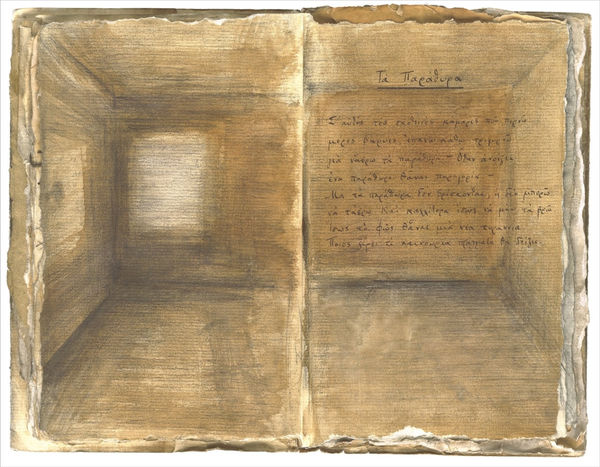 Τα Παράθυρα
Σ' αυτές τες σκοτεινές κάμαρες που περνώ
μέρες βαρυές, επάνω κάτω τριγυρνώ
για νάβρω τα παράθυρα — Όταν ανοίξει
ένα παράθυρο θάναι παρηγορία —
Μα τα παράθυρα δεν βρίσκονται, ή δεν μπορώ
να τάβρω. Και καλλίτερα ίσως να μην τα βρω
Ίσως το φως θάναι μια νέα τυραννία
Ποιος ξέρει τι καινούρια πράγματα θα δείξει.